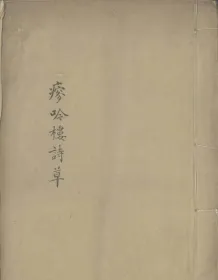 瘳吟樓詩草